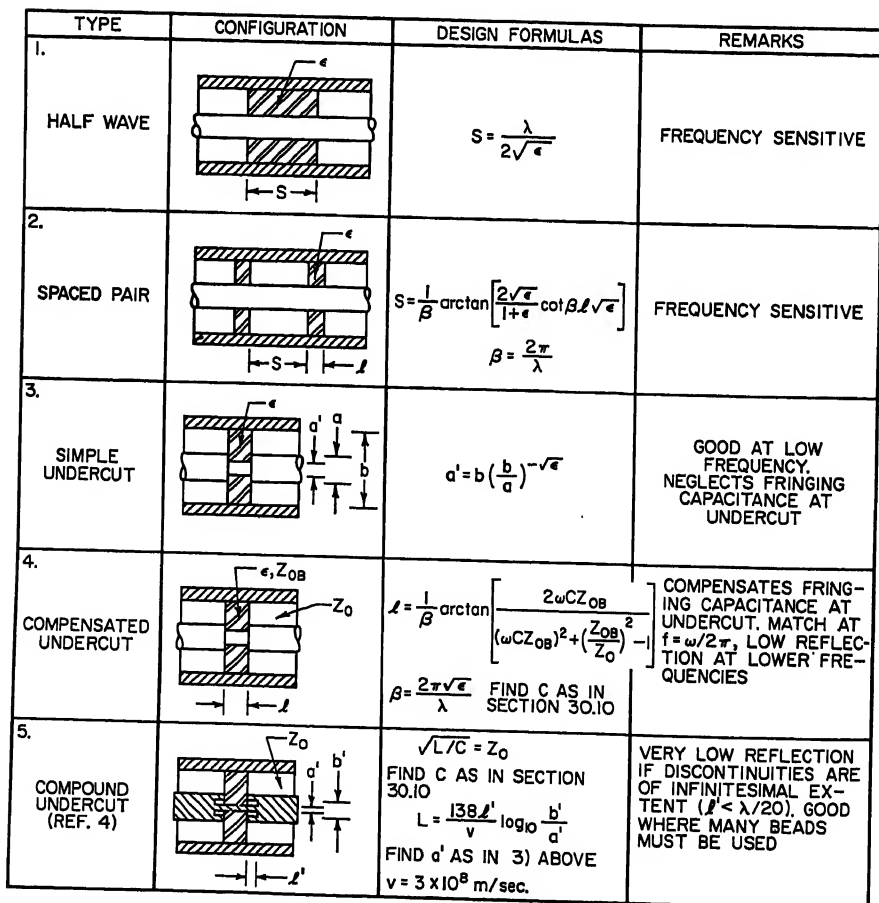 TYPE CONFIGURATION DESIGN FORMULAS REMARKS
1.
HALF WAVE
ϵ
S
S = λ / 2√ϵ
FREQUENCY SENSITIVE
2.
SPACED PAIR
ϵ
S ℓ
S = 1/β arctan[2√ϵ / 1+ϵ cot βℓ√ϵ]
β = 2π / λ
FREQUENCY SENSITIVE
3.
SIMPLE
UNDERCUT
ϵ
a' a
b
a' = b (b/a)^-√ϵ
GOOD AT LOW
FREQUENCY.
NEGLECTS FRINGING
CAPACITANCE AT
UNDERCUT
4.
COMPENSATED
UNDERCUT
ϵ, Z_OB
Z_O
ℓ
ℓ = 1/β arctan[2ωCZ_OB / (ωCZ_OB)^2 + (Z_OB/Z_O)^2 - 1]
β = 2π√ϵ / λ FIND C AS IN
SECTION 30.10
COMPENSATES FRING-
ING CAPACITANCE AT
UNDERCUT. MATCH AT
f = ω/2π, LOW REFLEC-
TION AT LOWER FRE-
QUENCIES
5.
COMPOUND
UNDERCUT
(REF. 4)
Z_O
a' b'
ℓ'
√L/C = Z_O
FIND C AS IN SECTION
30.10
L = 138ℓ' / v log10 b'/a'
FIND a' AS IN 3) ABOVE
v = 3 x 10^8 m/sec.
VERY LOW REFLECTION
IF DISCONTINUITIES ARE
OF INFINITESIMAL EX-
TENT (ℓ' < λ/20). GOOD
WHERE MANY BEADS
MUST BE USED